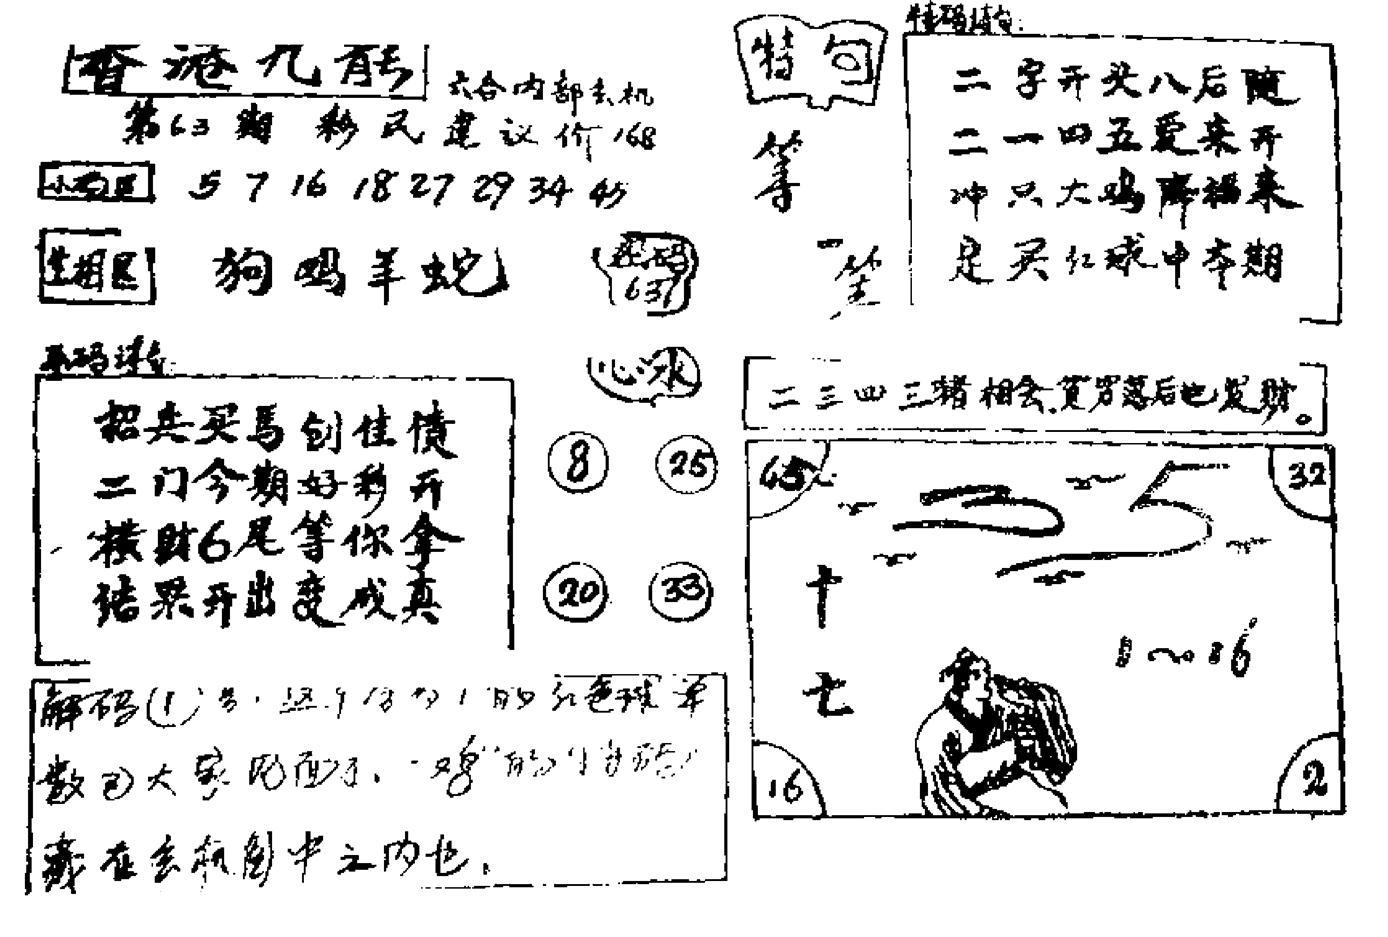 香港九龍
六合内部玄机
第63期 彩民建议价168
小码区 5 7 16 18 27 29 34 45
生相区 狗鸡羊蛇
631
招兵买馬创佳债
二门今期好彩开
横财6尾等你拿
结果开出变成真
心水
8 25
20 33
解码(1)
数
藏在玄机图中之内也.
特句
等
一笔
二字开头八后随
二一四五爱来开
冲只大鸡降福来
是买红球中本期
二三四三猪相会.
落后也发财。
45 32
三 5
十七
1~16
16 2